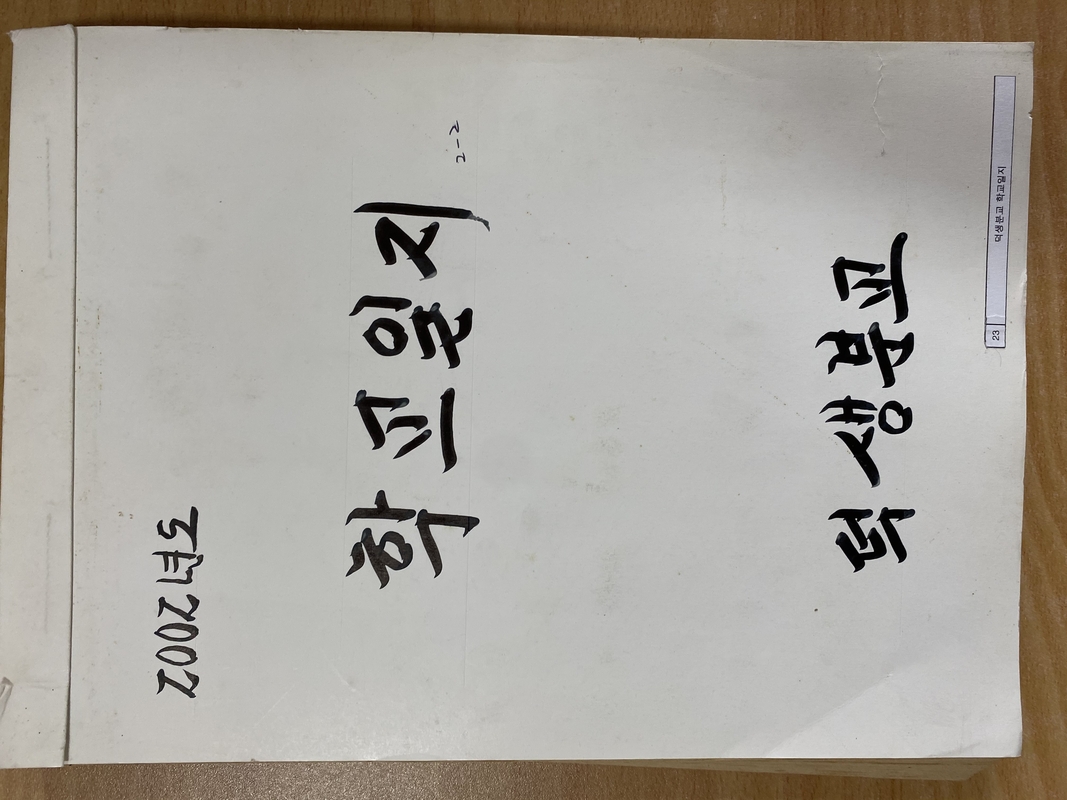 2002년도
학교일지
2-2
덕생분교
23 덕생분교 학교일지